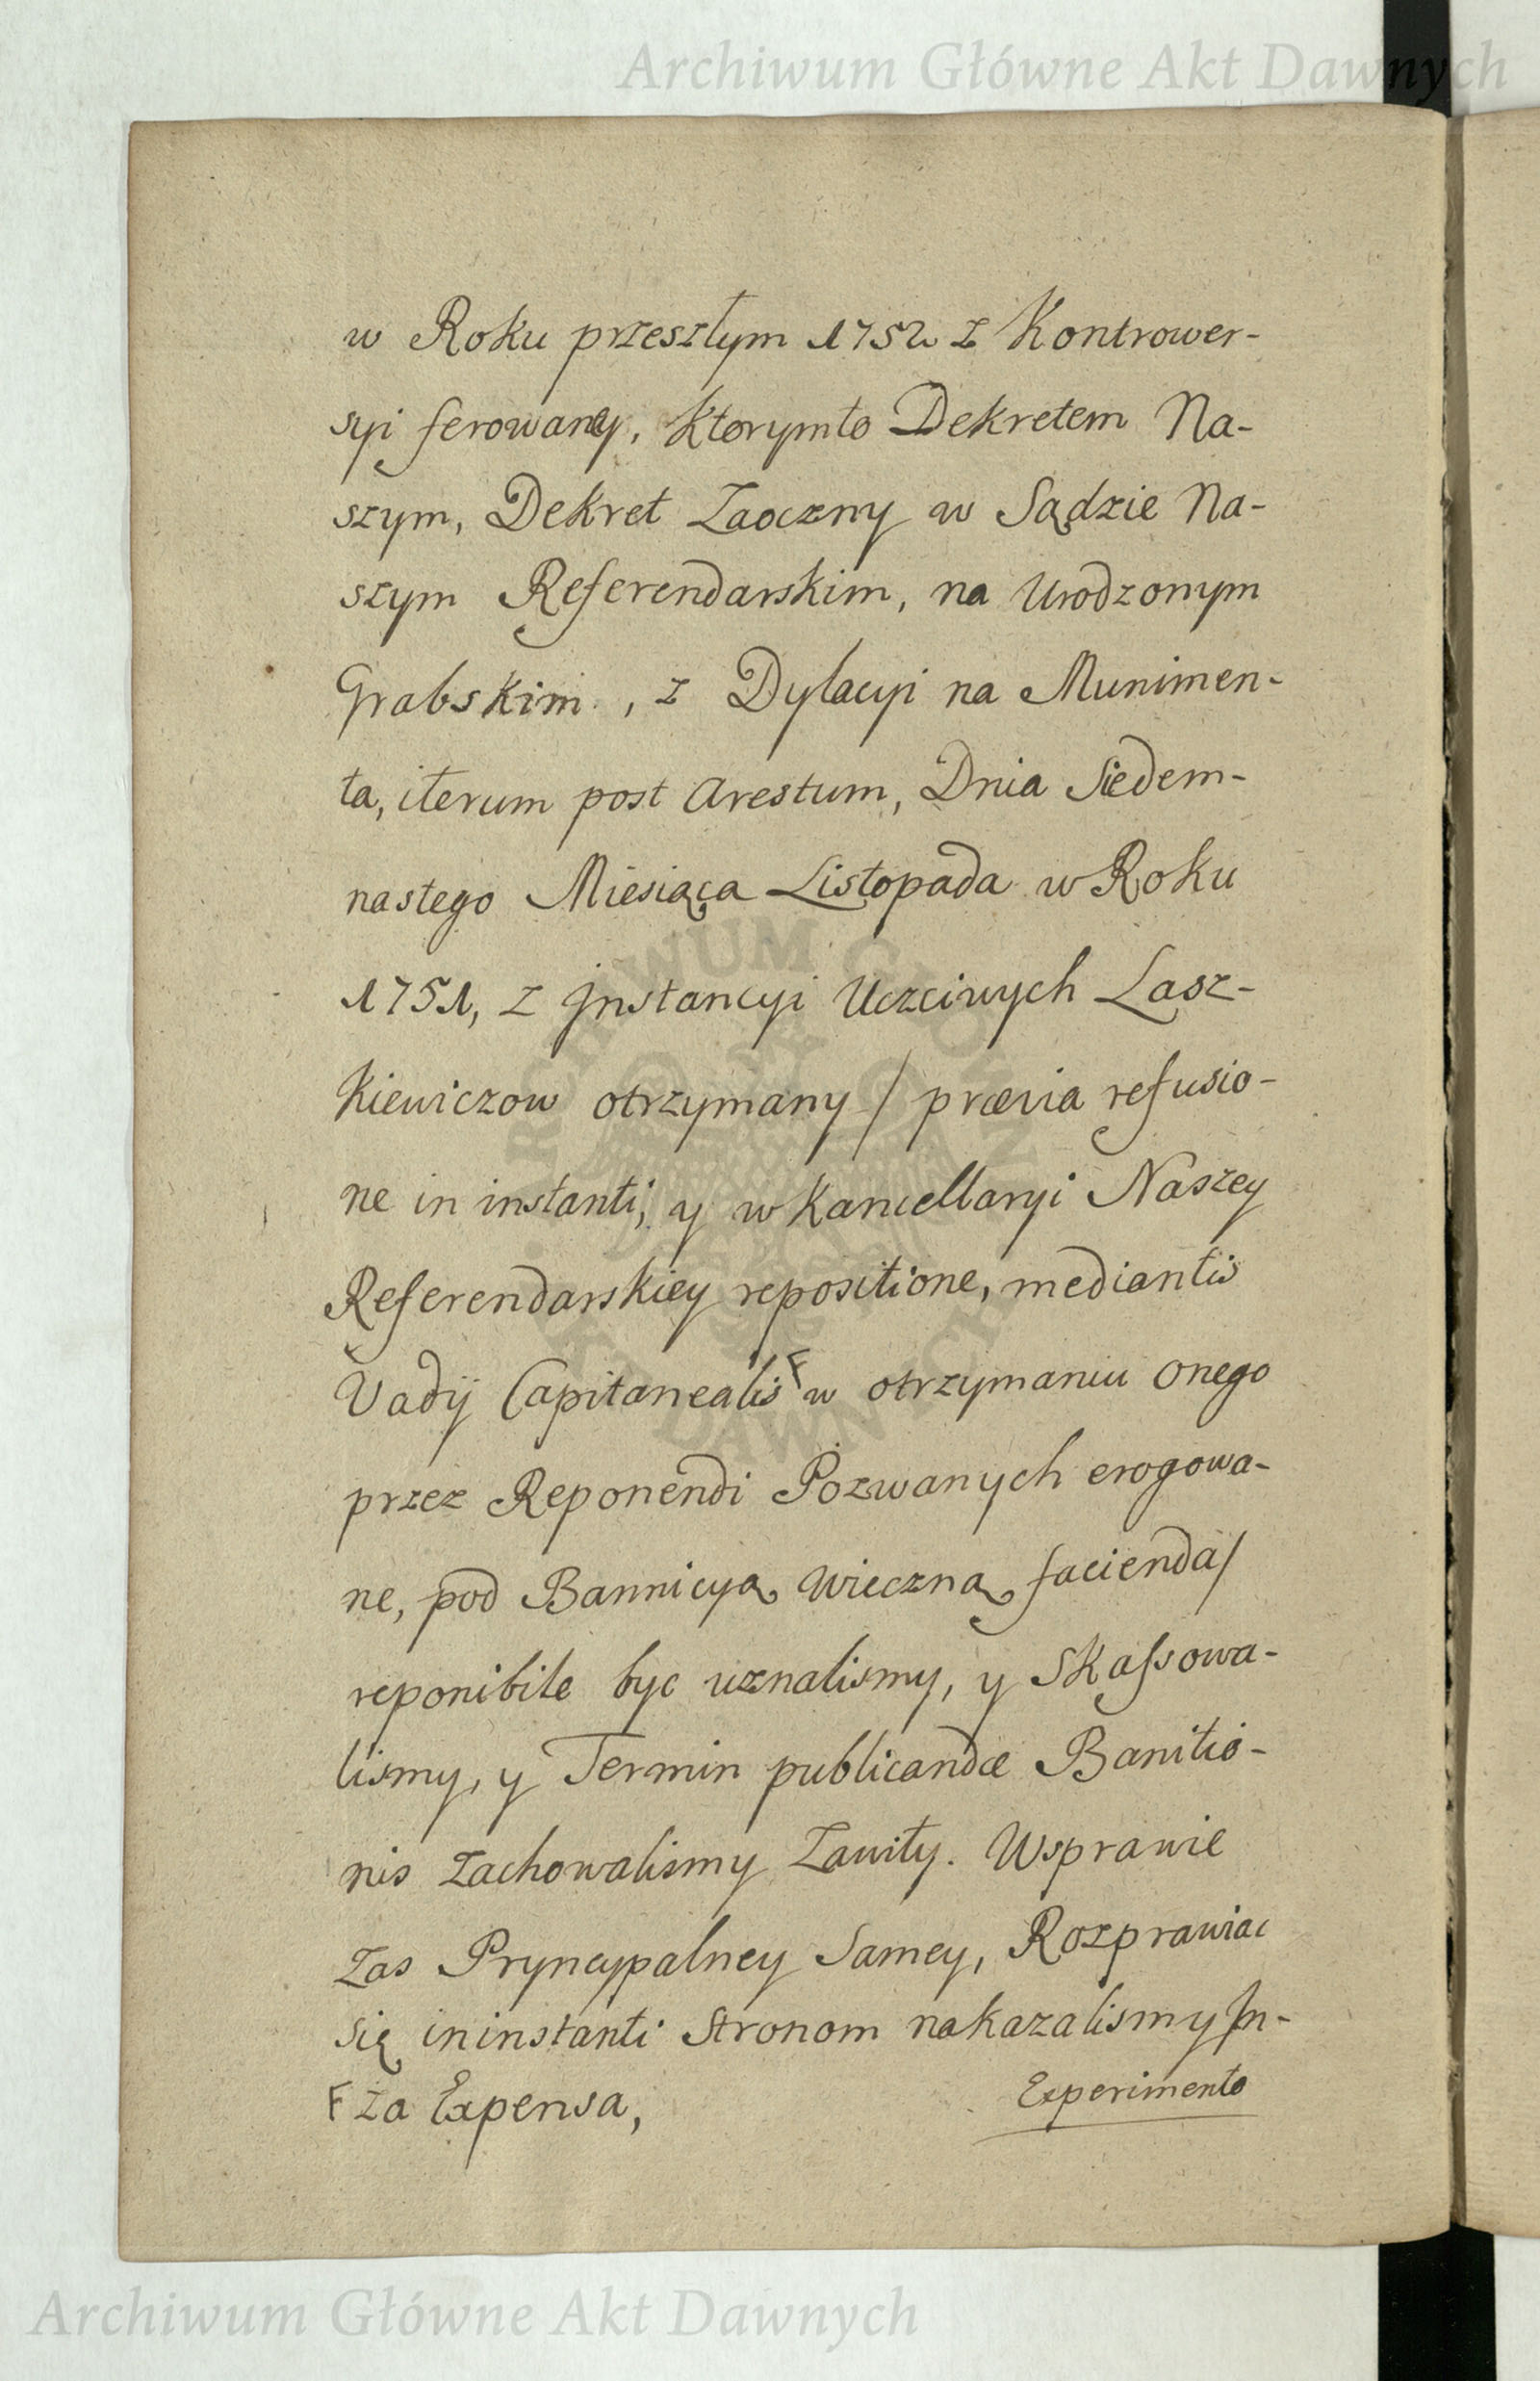 Archiwum Główne Akt Dawnych
w Roku przeszłym 1752 z Kontrower-
syi ferowany, ktorymto Dekretem Na-
szym, Dekret Zaoczny w Sądzie Na-
szym Referendarskim, na Urodzonym
Grabskim, z Dylacyi na Munimen-
ta, iterum post Arestum, Dnia Siedem-
nastego Miesiąca Listopada w Roku
1751, z Jnstancyi Uczciwych Lasz-
kiewiczow otrzymany / prævia refusio-
ne in instanti, y w Kancellaryi Naszey
Referendarskiey repositione, mediantis
Vadij Capitanealis F w otrzymaniu onego
przez Reponendi Pozwanych erogowa-
ne, pod Bannicyą wieczną facienda /
reponibile byc uznalismy, y Skassowa-
lismy, y Termin publicandæ Banitio-
nis zachowalismy Zawity. Wsprawie
zas Pryncypalney Samey, Rozprawiac
się ininstanti Stronom nakazalismy Jn-
F za Expensa,
Experimento
Archiwum Główne Akt Dawnych